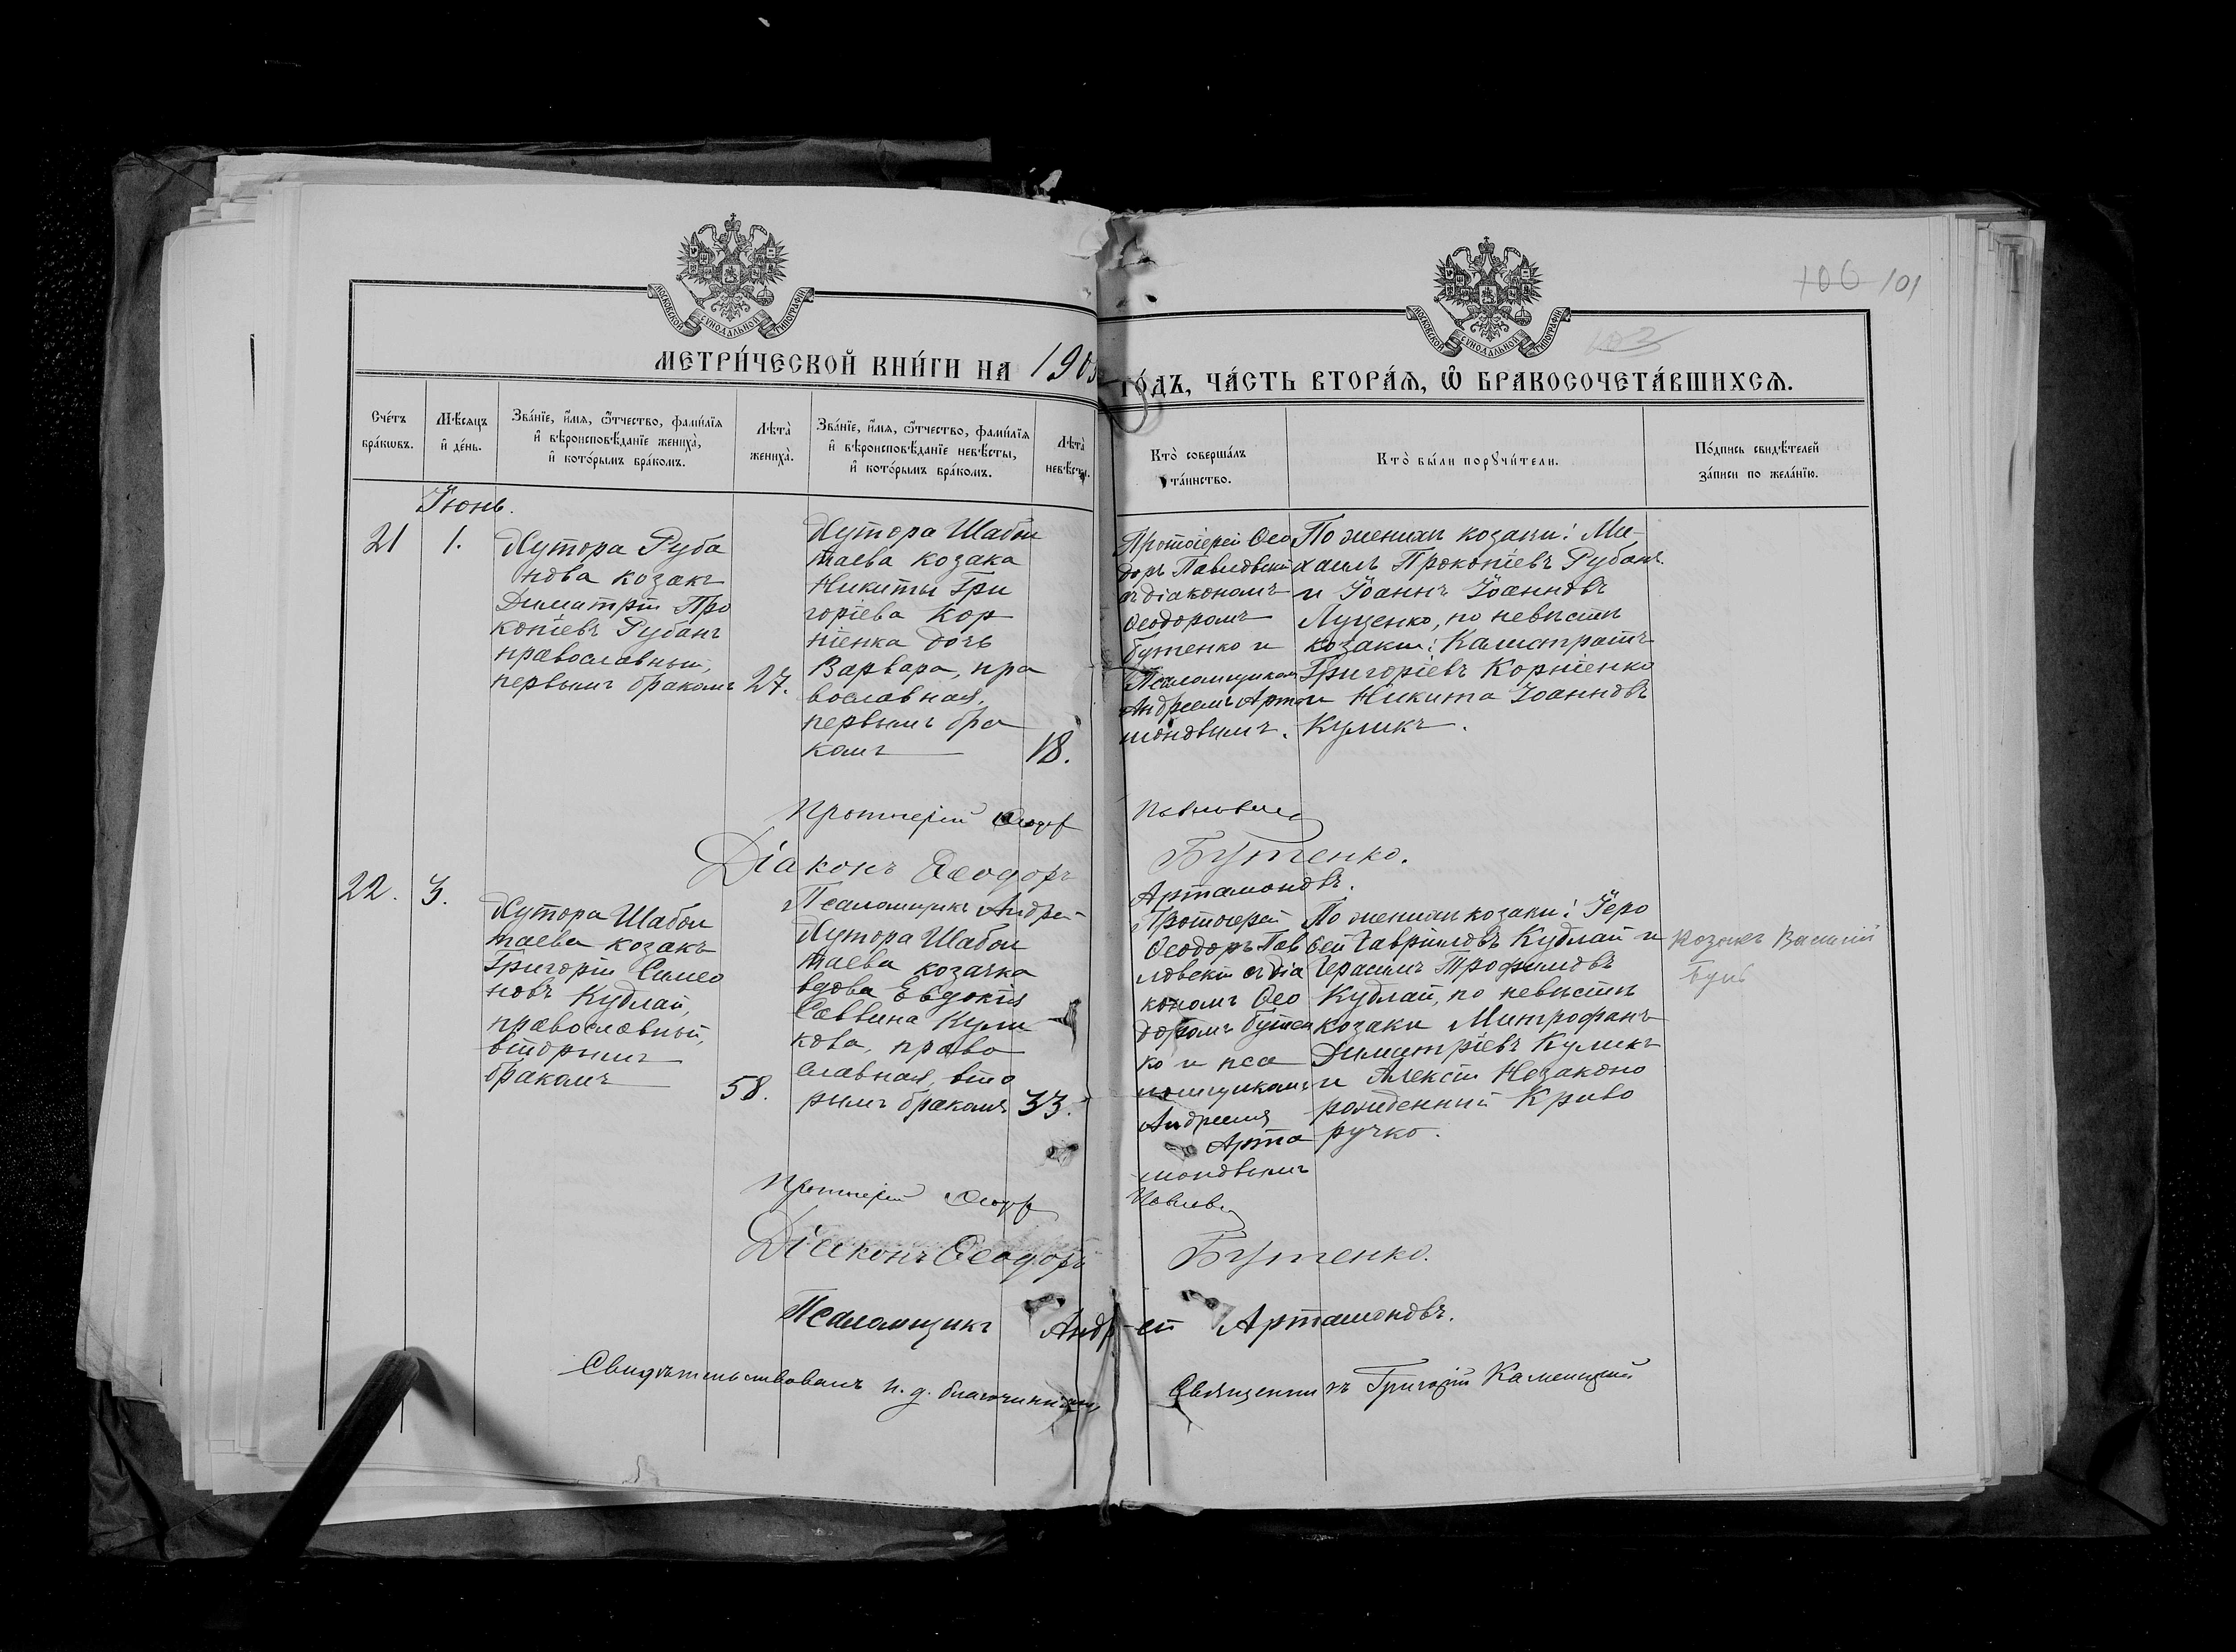 МОСКОВСКОЙ СѴНОДАЛЬНОЙ ТИПОГРАФІИ
МОСКОВСКОЙ СѴНОДАЛЬНОЙ ТИПОГРАФІИ
100 101
103
МЕТРИ́ЧЕСКОЙ КНИ́ГИ НА 1905
ГО́ДЪ, ЧА́СТЬ ВТОРА́Я, Ѡ҆ БРАКОСОЧЕТА́ВШИХСЯ.
Сче́тъ
бра́кѡвъ.
Мѣ́сяцъ
и҆ де́нь.
Зва́нїе, и҆́мя, ѻ҆́тчество, фами́лїя
и҆ вѣроисповѣ́данїе жениха̀,
и҆ кото́рымъ бра́комъ.
Лѣта̀
жениха̀.
Зва́нїе, и҆́мя, ѻ҆́тчество, фами́лїя
и҆ вѣроисповѣ́данїе невѣ́сты,
и҆ кото́рымъ бра́комъ.
Лѣта̀
невѣ́сты.
Кто̀ соверша́лъ
та́инство.
Кто̀ бы́ли порꙋчи́тели.
По́дпись свидѣ́телей
за́писи по жела́нїю.
Іюнь.
21
1.
Хутора Руба
нова козакъ
Димитрій Про
копіевъ Рубанъ
православный,
первымъ бракомъ
27.
Хутора Шабол
таева козака
Никиты Гри
горіева Кор
ніенка дочь
Варвара, пра
вославная,
первымъ бра
комъ
18.
Протоіерей Ѳео
доръ Павловскій
съ діакономъ
Ѳеодоромъ
Бутенко и
Псаломщикомъ
Андреемъ Арта
моновымъ.
По женихѣ козаки: Ми-
хаилъ Прокопіевъ Рубанъ
и Іоаннъ Іоанновъ
Луценко, по невѣстѣ
козаки: Калистратъ
Григоріевъ Корніенко
и Никита Іоанновъ
Куликъ.
Протоіерей Ѳеодоръ Павловскій
Діаконъ Ѳеодоръ Бутенко.
Псаломщикъ Андрей Артамоновъ.
22.
3.
Хутора Шабол
таева козакъ
Григорій Симео
новъ Кудлай,
православный,
вторымъ
бракомъ
58.
Хутора Шабол
таева козачка
вдова Евдокія
Саввина Кули
кова, право
славная, вто
рымъ бракомъ
33.
Протоіерей
Ѳеодоръ Пав
ловскій съ діа
кономъ Ѳео
доромъ Бутен
ко и пса
ломщикомъ
Андреемъ
Арта
моновымъ
По женихѣ козаки: Іеро
ѳей Гавриловъ Кудлай и
Герасимъ Трофимовъ
Кудлай, по невѣстѣ
козаки Митрофанъ
Димитріевъ Куликъ
и Алексій Незаконо
рожденный Криво
ручко.
Козакъ Василій
Протоіерей Ѳеодоръ Павловскій
Діаконъ Ѳеодоръ Бутенко.
Псаломщикъ Андрей Артамоновъ.
Свидѣтельствовалъ и. д. благочиннаго Священникъ Григорій